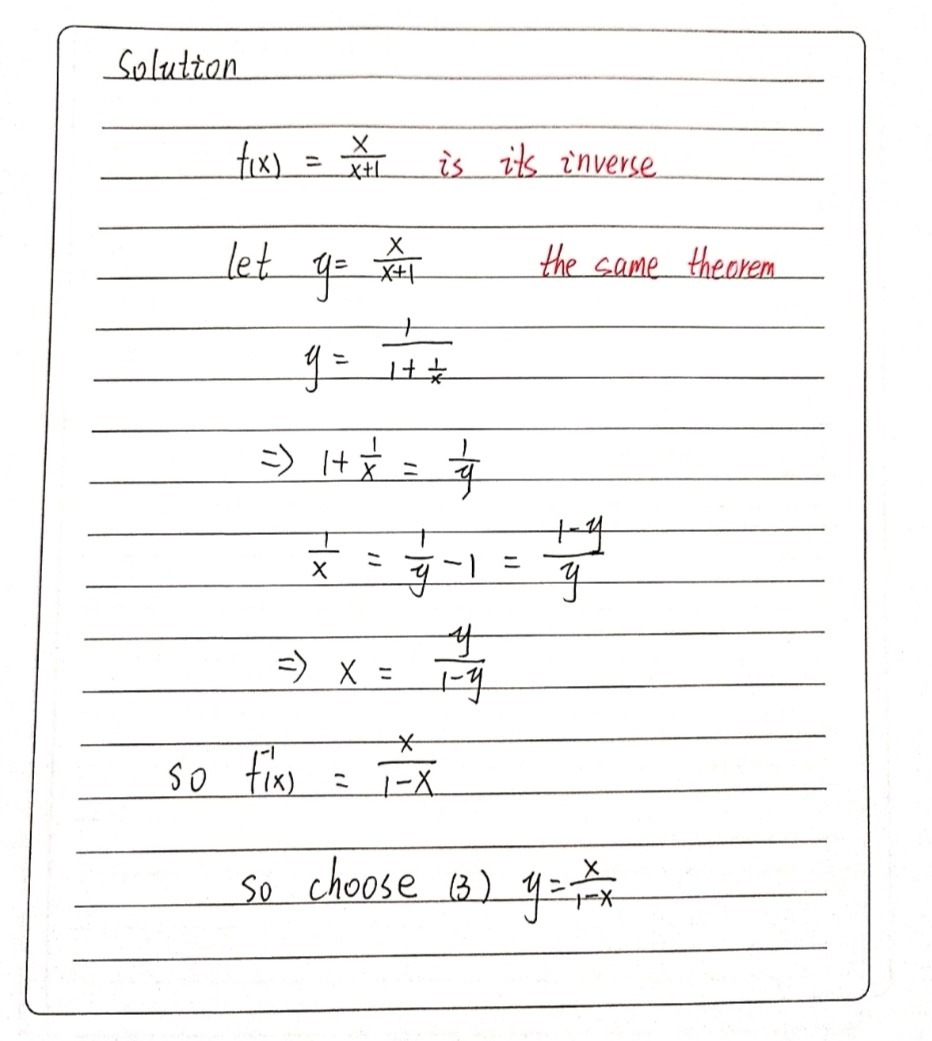 Solution
f(x) = x/(x+1) is its inverse
let y = x/(x+1) the same theorem
y = 1/(1+1/x)
=> 1+1/x = 1/y
1/x = 1/y -1 = (1-y)/y
=> x = y/(1-y)
so f⁻¹(x) = x/(1-x)
so choose (3) y = x/(1-x)